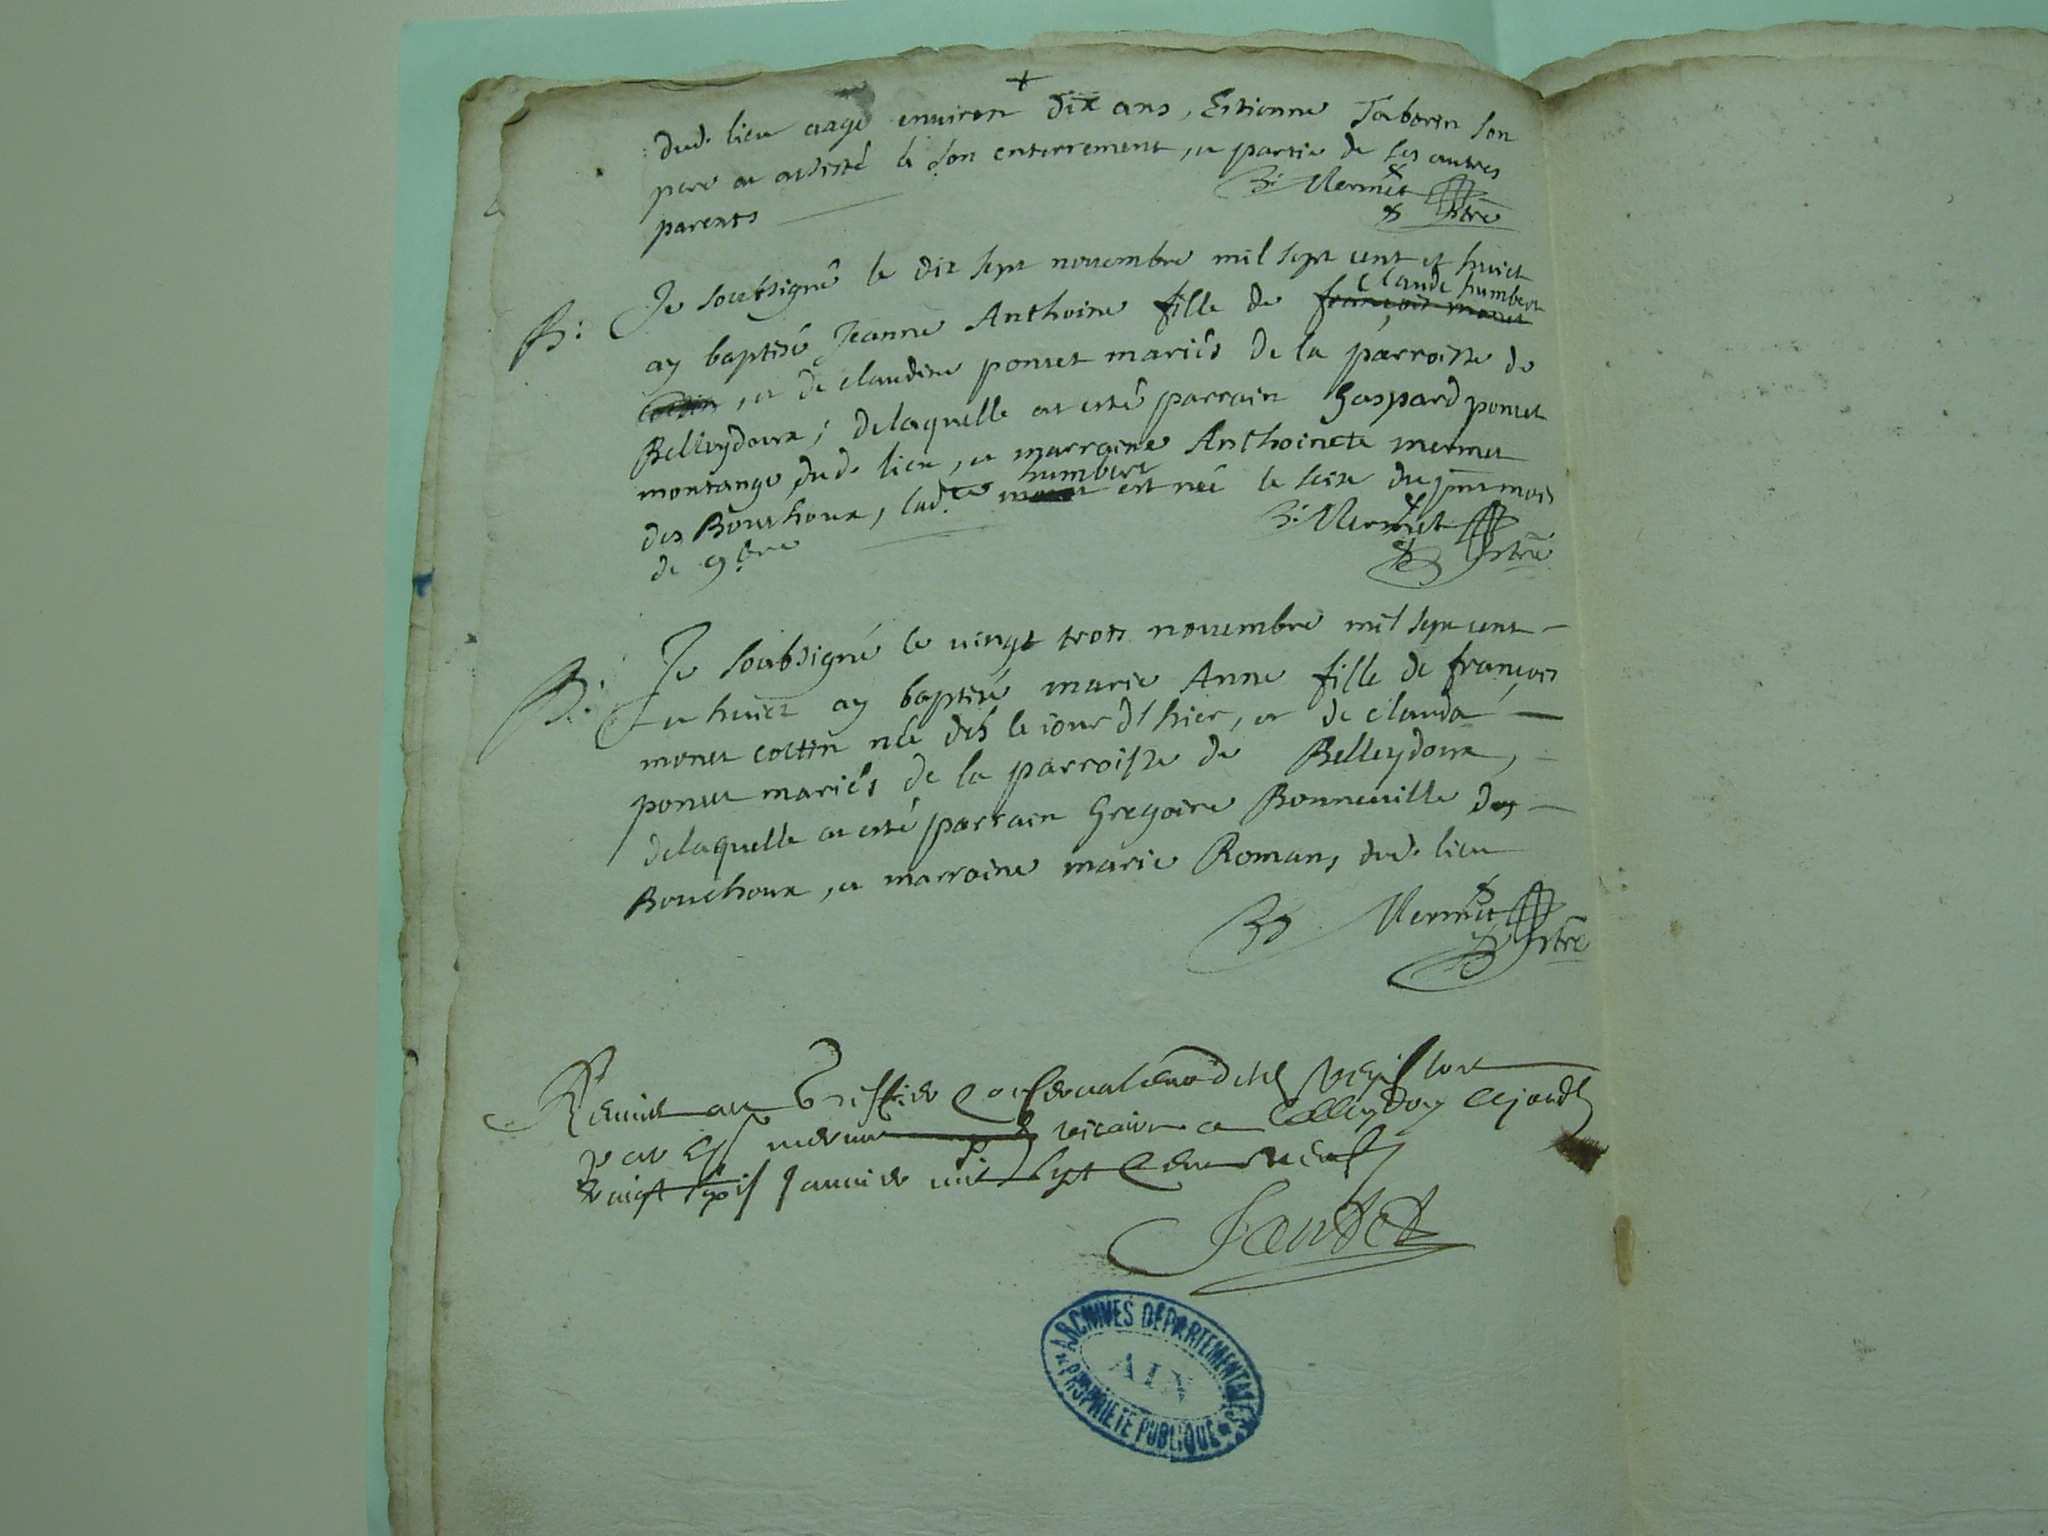 dud. lieu aagé environ dix ans, Estienne Taborin son
pere at assisté à son enterrement, et partie de ses autres
parents
B. Mermet
ptre
B: Je soubsigné le dix sept novembre mil sept cent et huict
ay baptisé Jeanne Anthoine fille de françois monet Claude humbert
cottin, et de claudine poncet mariés de la parroisse de
Belleydoux, delaquelle at esté parrain Gaspard poncet
montange dud. lieu, et marraine Anthoinete mermet
des Bouchoux, lad.te humbert est née le seize du pnt mois
de 9bre
B. Mermet
ptre
B: Je soubsigné le vingt trois novembre mil sept cent
et huict ay baptisé marie Anne fille de françois
monet cottin née dès le jour d'hier, et de clauda
poncet mariés de la parroisse de Belleydoux,
delaquelle at esté parrain Gregoire Bonneville des
Bouchoux, et marraine marie Roman, dud. lieu
B. Mermet
ptre
Remis au Greffier Conservateur des Registres
par mermet vicaire a Belleydoux cejourdh
vingt six Janvier mil sept Cent neuf
Jantet
ARCHIVES DÉPARTEMENTALES
AIN
PROPRIÉTÉ PUBLIQUE